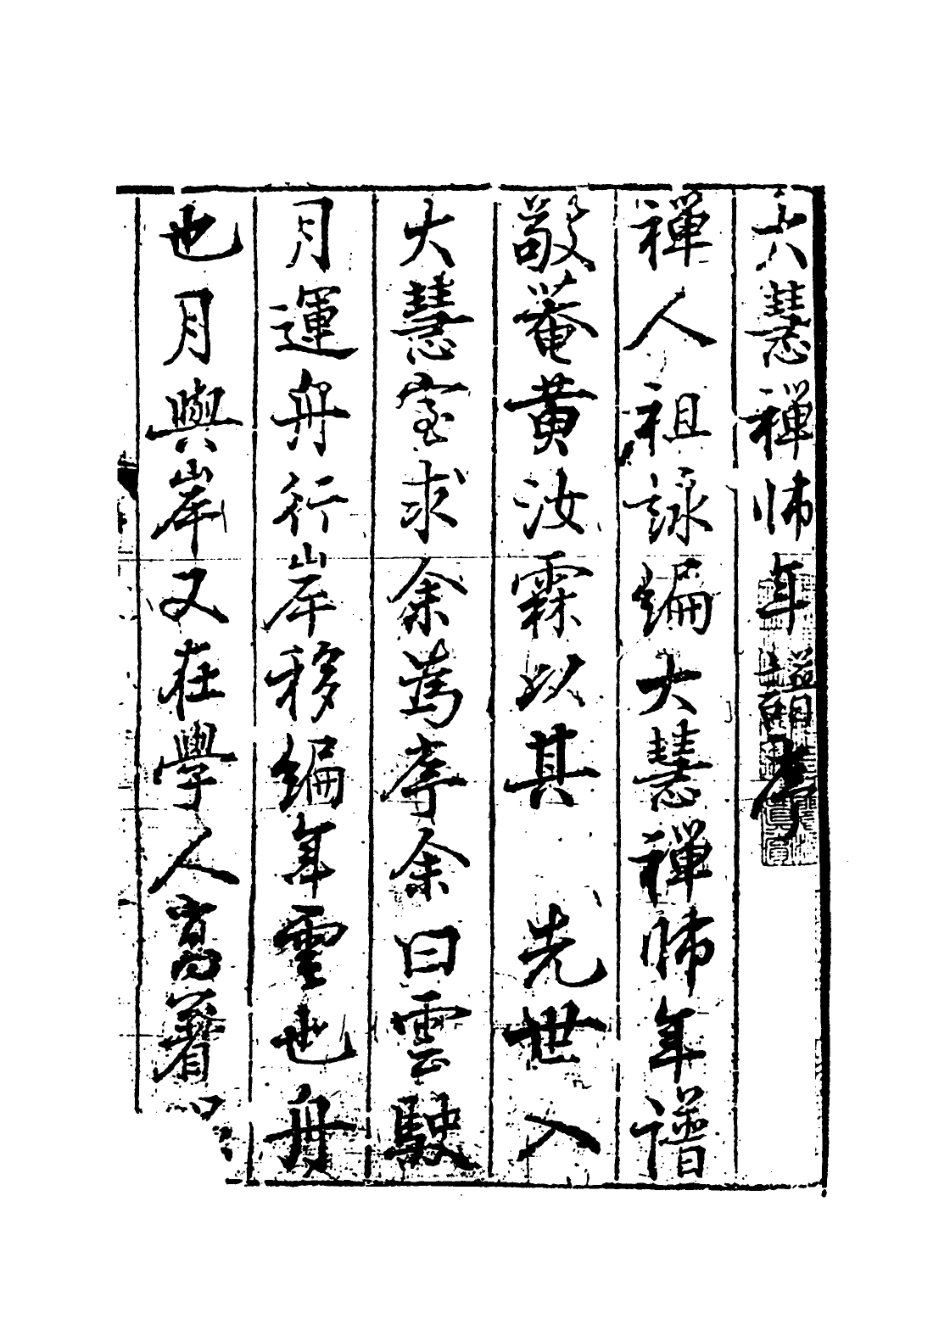 大慧禪師年譜序
禪人祖詠編大慧禪師年譜
敬菴黃汝霖以其先世入
大慧室求余為序余曰雲駛
月運舟行岸移編年雲也舟
也月與岸又在學人高著